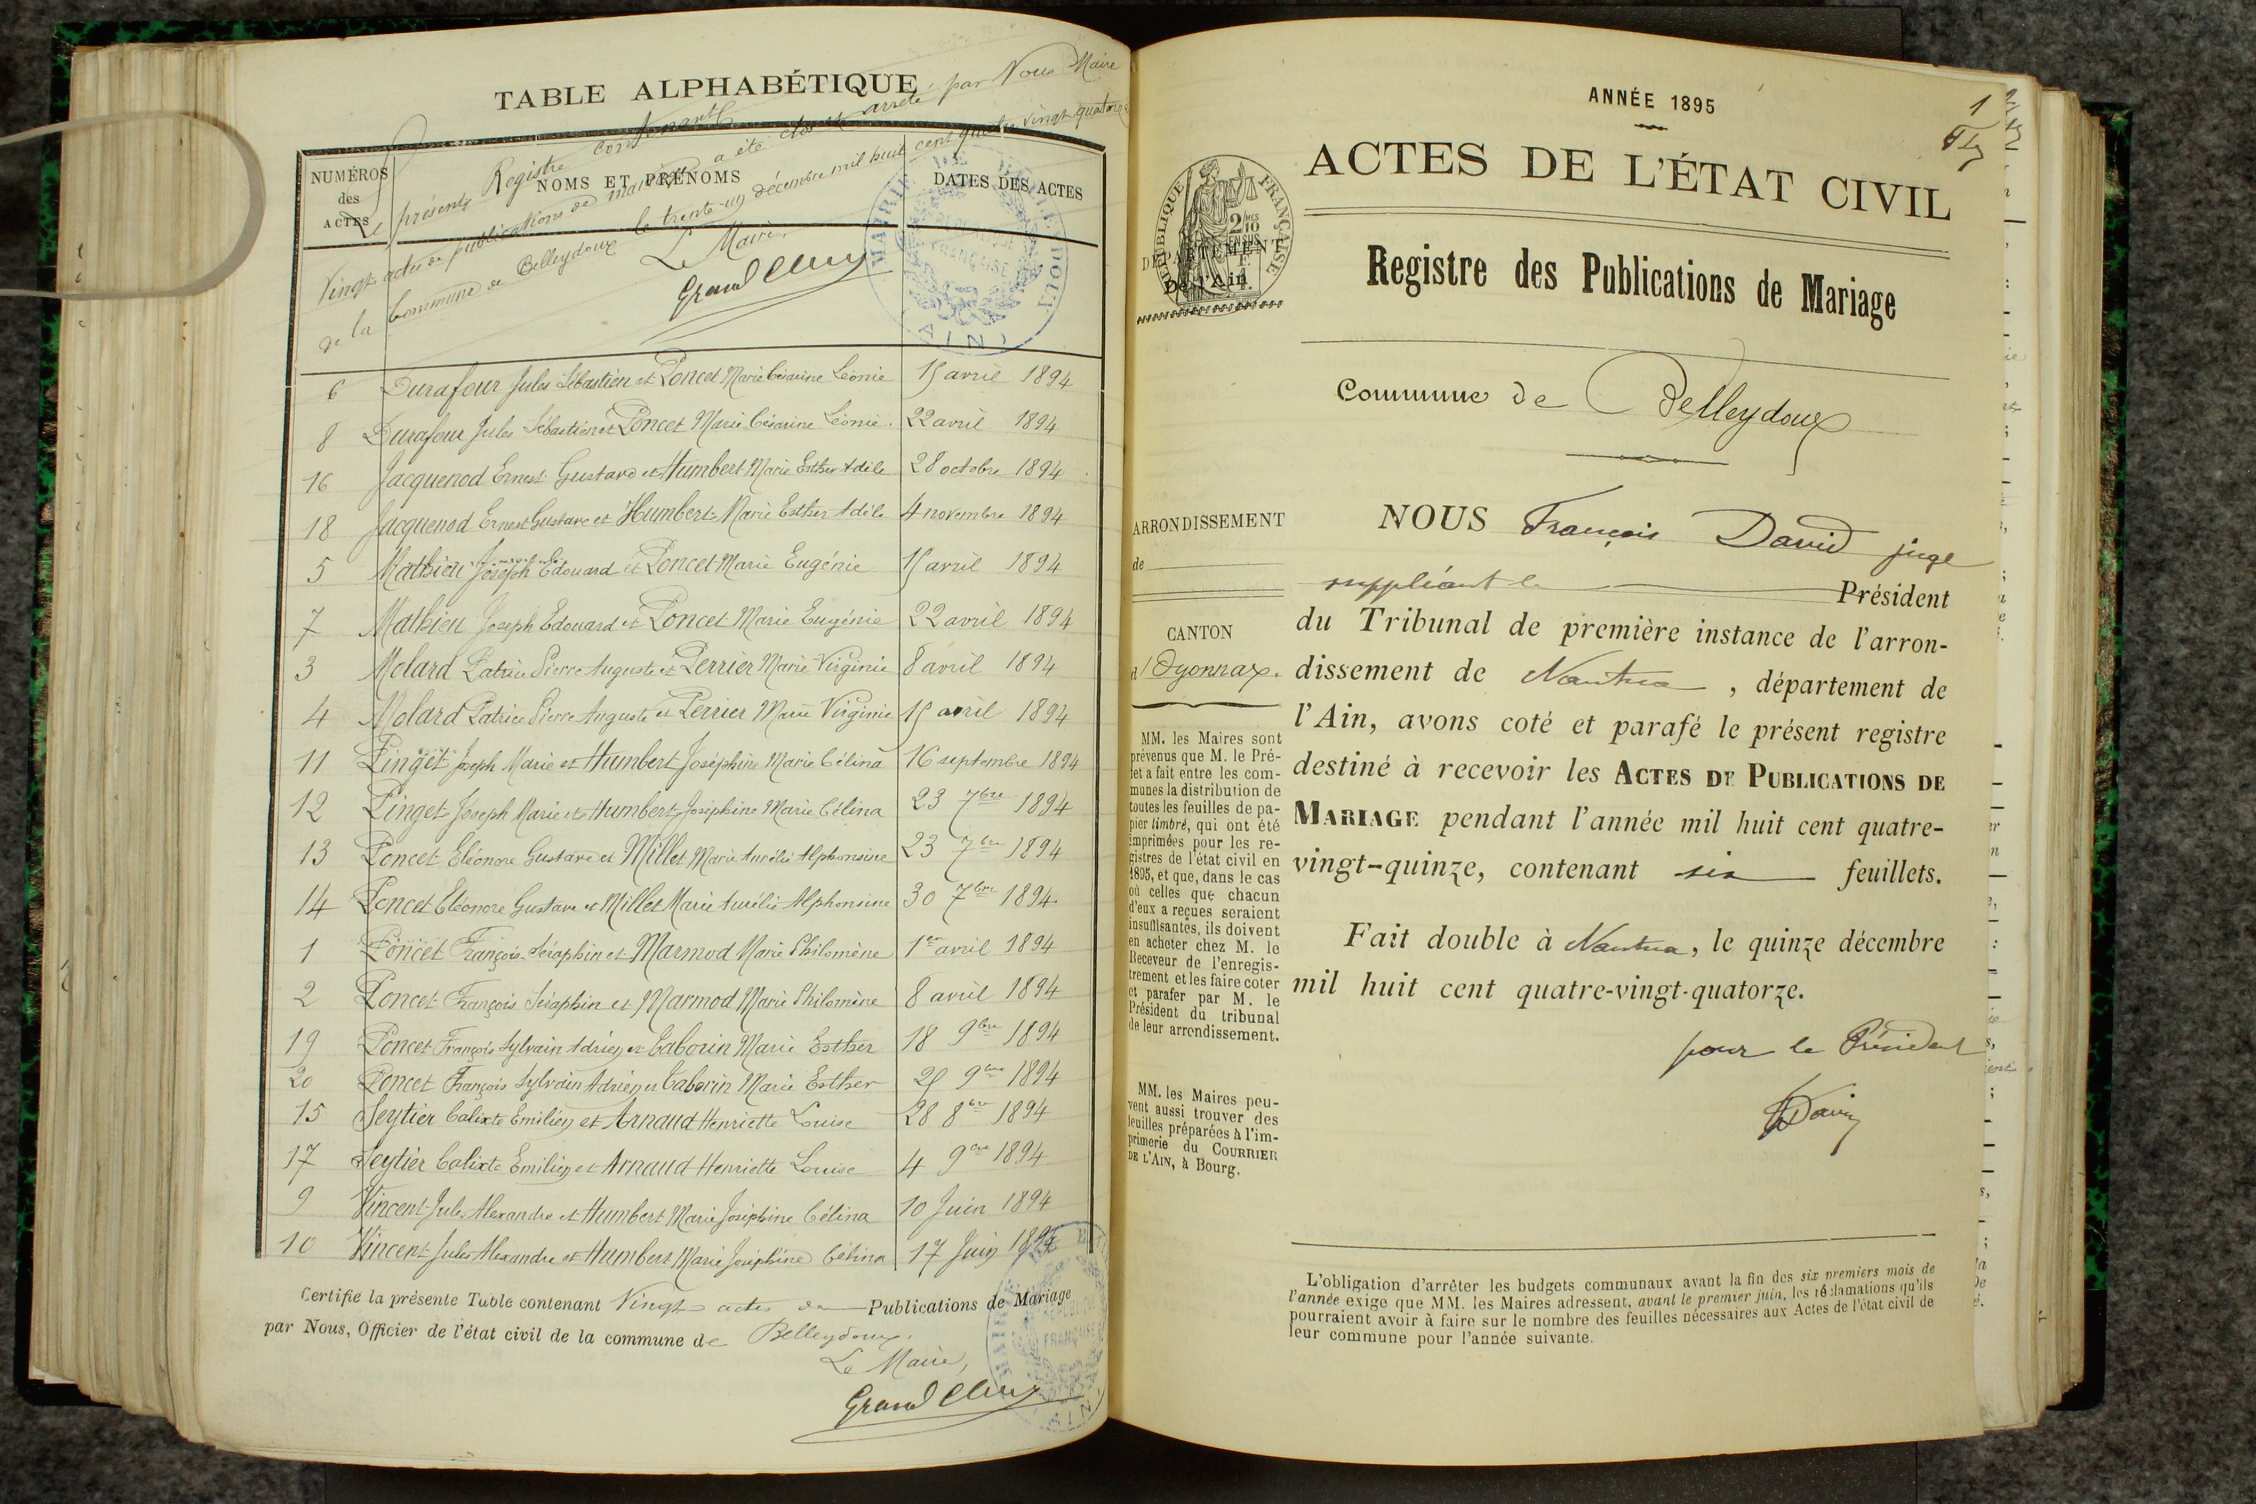 TABLE ALPHABÉTIQUE
Le présent Registre contenant
Vingt actes de publications de mariage a été clos et arrêté par Nous Maire
de la Commune de Belleydoux le trente-un décembre mil huit cent quatre vingt quatorze
Le Maire,
Grand Clément
NUMÉROS
des
ACTES
NOMS ET PRÉNOMS
DATES DES ACTES
MAIRIE DE BELLEYDOUX
RÉPUBLIQUE FRANÇAISE
(AIN)
6 Durafour Jules Sébastien et Poncet Marie Césarine Léonie 15 avril 1894
8 Durafour Jules Sébastien et Poncet Marie Césarine Léonie. 22 avril 1894
16 Jacquenod Ernest Gustave et Humbert Marie Esther Adèle 28 octobre 1894
18 Jacquenod Ernest Gustave et Humbert Marie Esther Adèle 4 novembre 1894
5 Mathieu Joseph Edouard et Poncet Marie Eugénie 15 avril 1894
7 Mathieu Joseph Edouard et Poncet Marie Eugénie 22 avril 1894
3 Molard Patrice Pierre Auguste et Perrier Marie Virginie 8 avril 1894
4 Molard Patrice Pierre Auguste et Perrier Marie Virginie 15 avril 1894
11 Pinget Joseph Marie et Humbert Joséphine Marie Célina 16 septembre 1894
12 Pinget Joseph Marie et Humbert Joséphine Marie Célina 23 7bre 1894
13 Poncet Eléonore Gustave et Millet Marie Aurélie Alphonsine 23 7bre 1894
14 Poncet Eléonore Gustave et Millet Marie Aurélie Alphonsine 30 7bre 1894
1 Poncet François-Séraphin et Marmod Marie Philomène 1er avril 1894
2 Poncet François Séraphin et Marmod Marie Philomène 8 avril 1894
19 Poncet François Sylvain Adrien et Cabourin Marie Esther 18 9bre 1894
20 Poncet François Sylvain Adrien et Marie Esther 25 9bre 1894
15 Seytier Calixte Emilien et Arnaud Henriette Louise 28 8bre 1894
17 Seytier Calixte Emilien et Arnaud Henriette Louise 4 9bre 1894
9 Vincent Jules Alexandre et Humbert Marie Joséphine Célina 10 Juin 1894
10 Vincent Jules Alexandre et Humbert Marie Joséphine Célina 17 Juin 1894
Certifie la présente Table contenant Vingt actes de Publications de Mariage
par Nous, Officier de l'état civil de la commune de Belleydoux.
Le Maire,
Grand Clément
ANNÉE 1895
1
ACTES DE L'ÉTAT CIVIL
RÉPUBLIQUE FRANÇAISE
2/10 EN SUS
DÉPARTEMENT
De l'Ain.
Registre des Publications de Mariage
Commune de Belleydoux
ARRONDISSEMENT
de
CANTON
d'Oyonnax.
MM. les Maires sont
prévenus que M. le Pré-
fet a fait entre les com-
munes la distribution de
toutes les feuilles de pa-
pier timbré, qui ont été
imprimées pour les re-
gistres de l'état civil en
1895, et que, dans le cas
où celles que chacun
d'eux a reçues seraient
insuffisantes, ils doivent
en acheter chez M. le
Receveur de l'enregis-
trement et les faire coter
et parafer par M. le
Président du tribunal
de leur arrondissement.
MM. les Maires peu-
vent aussi trouver des
feuilles préparées à l'im-
primerie du COURRIER
DE L'AIN, à Bourg.
NOUS François David juge
suppléant le Président
du Tribunal de première instance de l'arron-
dissement de Nantua, département de
l'Ain, avons coté et parafé le présent registre
destiné à recevoir les ACTES DE PUBLICATIONS DE
MARIAGE pendant l'année mil huit cent quatre-
vingt-quinze, contenant six feuillets.
Fait double à Nantua, le quinze décembre
mil huit cent quatre-vingt-quatorze.
pour le Président
David
L'obligation d'arrêter les budgets communaux avant la fin des six premiers mois de
l'année exige que MM. les Maires adressent, avant le premier juin, les réclamations qu'ils
pourraient avoir à faire sur le nombre des feuilles nécessaires aux Actes de l'état civil de
leur commune pour l'année suivante.